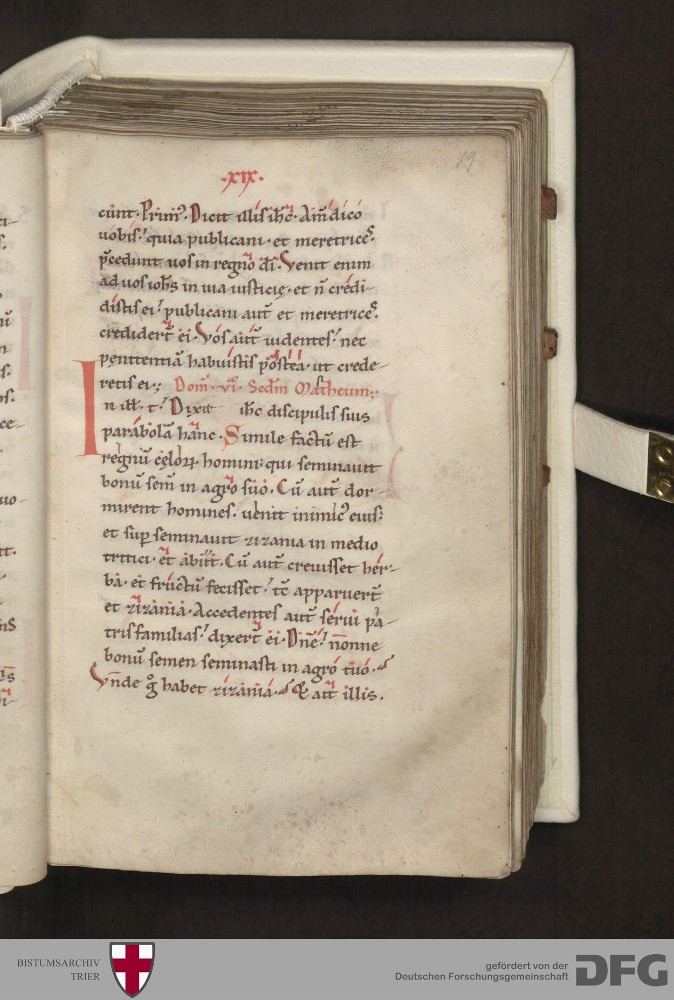 ·xix·
19
cunt· Prim᾽· Dicit illis ih̅c· Am̅ dico
uobis· quia publicani· et meretrices
p̅cedunt uos in regno di̅· Venit enim
ad uos ioh̅s in uia iusticię· et n̅ credi-
distis ei· publicani aut̅ et meretrices
crediderт̅ ei· Vos aut̅ uidentes· nec
penitentia̅ habuistis postea· ut crede-
retis ei·; Dom̅· vi· Scd̅m Matheum·;
In ill̅· t̅· Dixit ih̅c discipulis suis
parabola̅ hanc· Simile factu̅ est
regnu̅ cęloꝝ homini· qui seminauit
bonu̅ sem̅ in agro suo· Cu̅ aut̅ dor-
mirent homines· uenit inimic᾽ eius·
et sup̅ seminauit zizania in medio
tritici· et abiit· Cu̅ aut̅ creuisset her-
ba· et fructu̅ fecisset· tc̅ apparuert̅
et zizania· Accedentes aut̅ serui pa-
trisfamilias· dixert̅ ei· Dn̅e· nonne
bonu̅ semen seminasti in agro tuo·
Vnde g̊ habet zizania· Et ait illis·
BISTUMSARCHIV
TRIER
gefördert von der
Deutschen Forschungsgemeinschaft
DFG